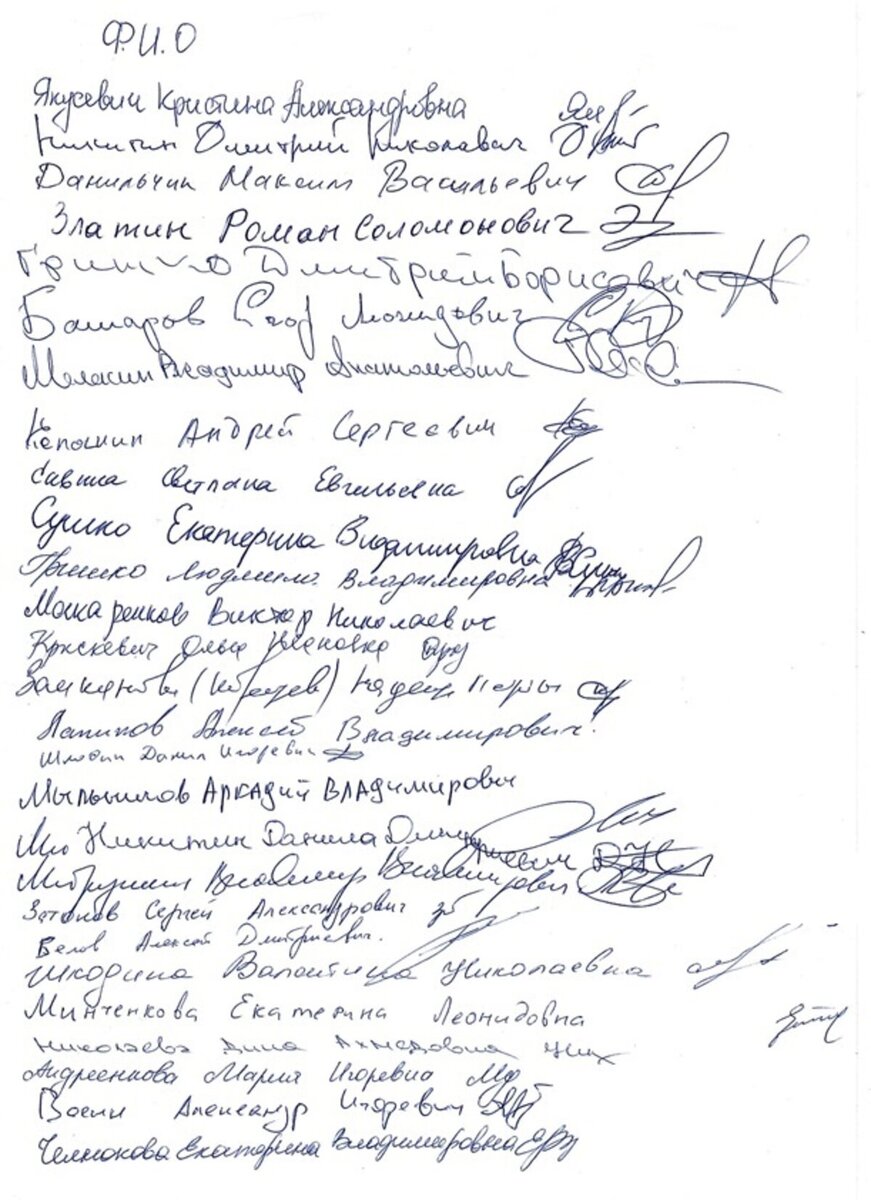 Ф.И.О
Якусевич Кристина Александровна
Никитин Дмитрий Николаевич
Данильчик Максим Васильевич
Златин Роман Соломонович
Дмитрий Борисович
Башаров Егор Леонидович
Владимир Анатольевич
Андрей Сергеевич
Савина Светлана Евгеньевна
Сушко Екатерина Владимировна
Гришко Людмила Владимировна
Макаренков Виктор Николаевич
Крискевич Ольга Ивановна
Лапиков Алексей Владимирович
Данил Игоревич
Мыльников Аркадий Владимирович
Никитин Данила Дмитриевич
Владимир Владимирович
Сергей Александрович
Белов Алексей Дмитриевич.
Шкодина Валентина Николаевна
Минченкова Екатерина Леонидовна
Николаева Дина Ахмедовна
Андреенкова Мария Игоревна
Александр Игоревич
Челнокова Екатерина Владимировна